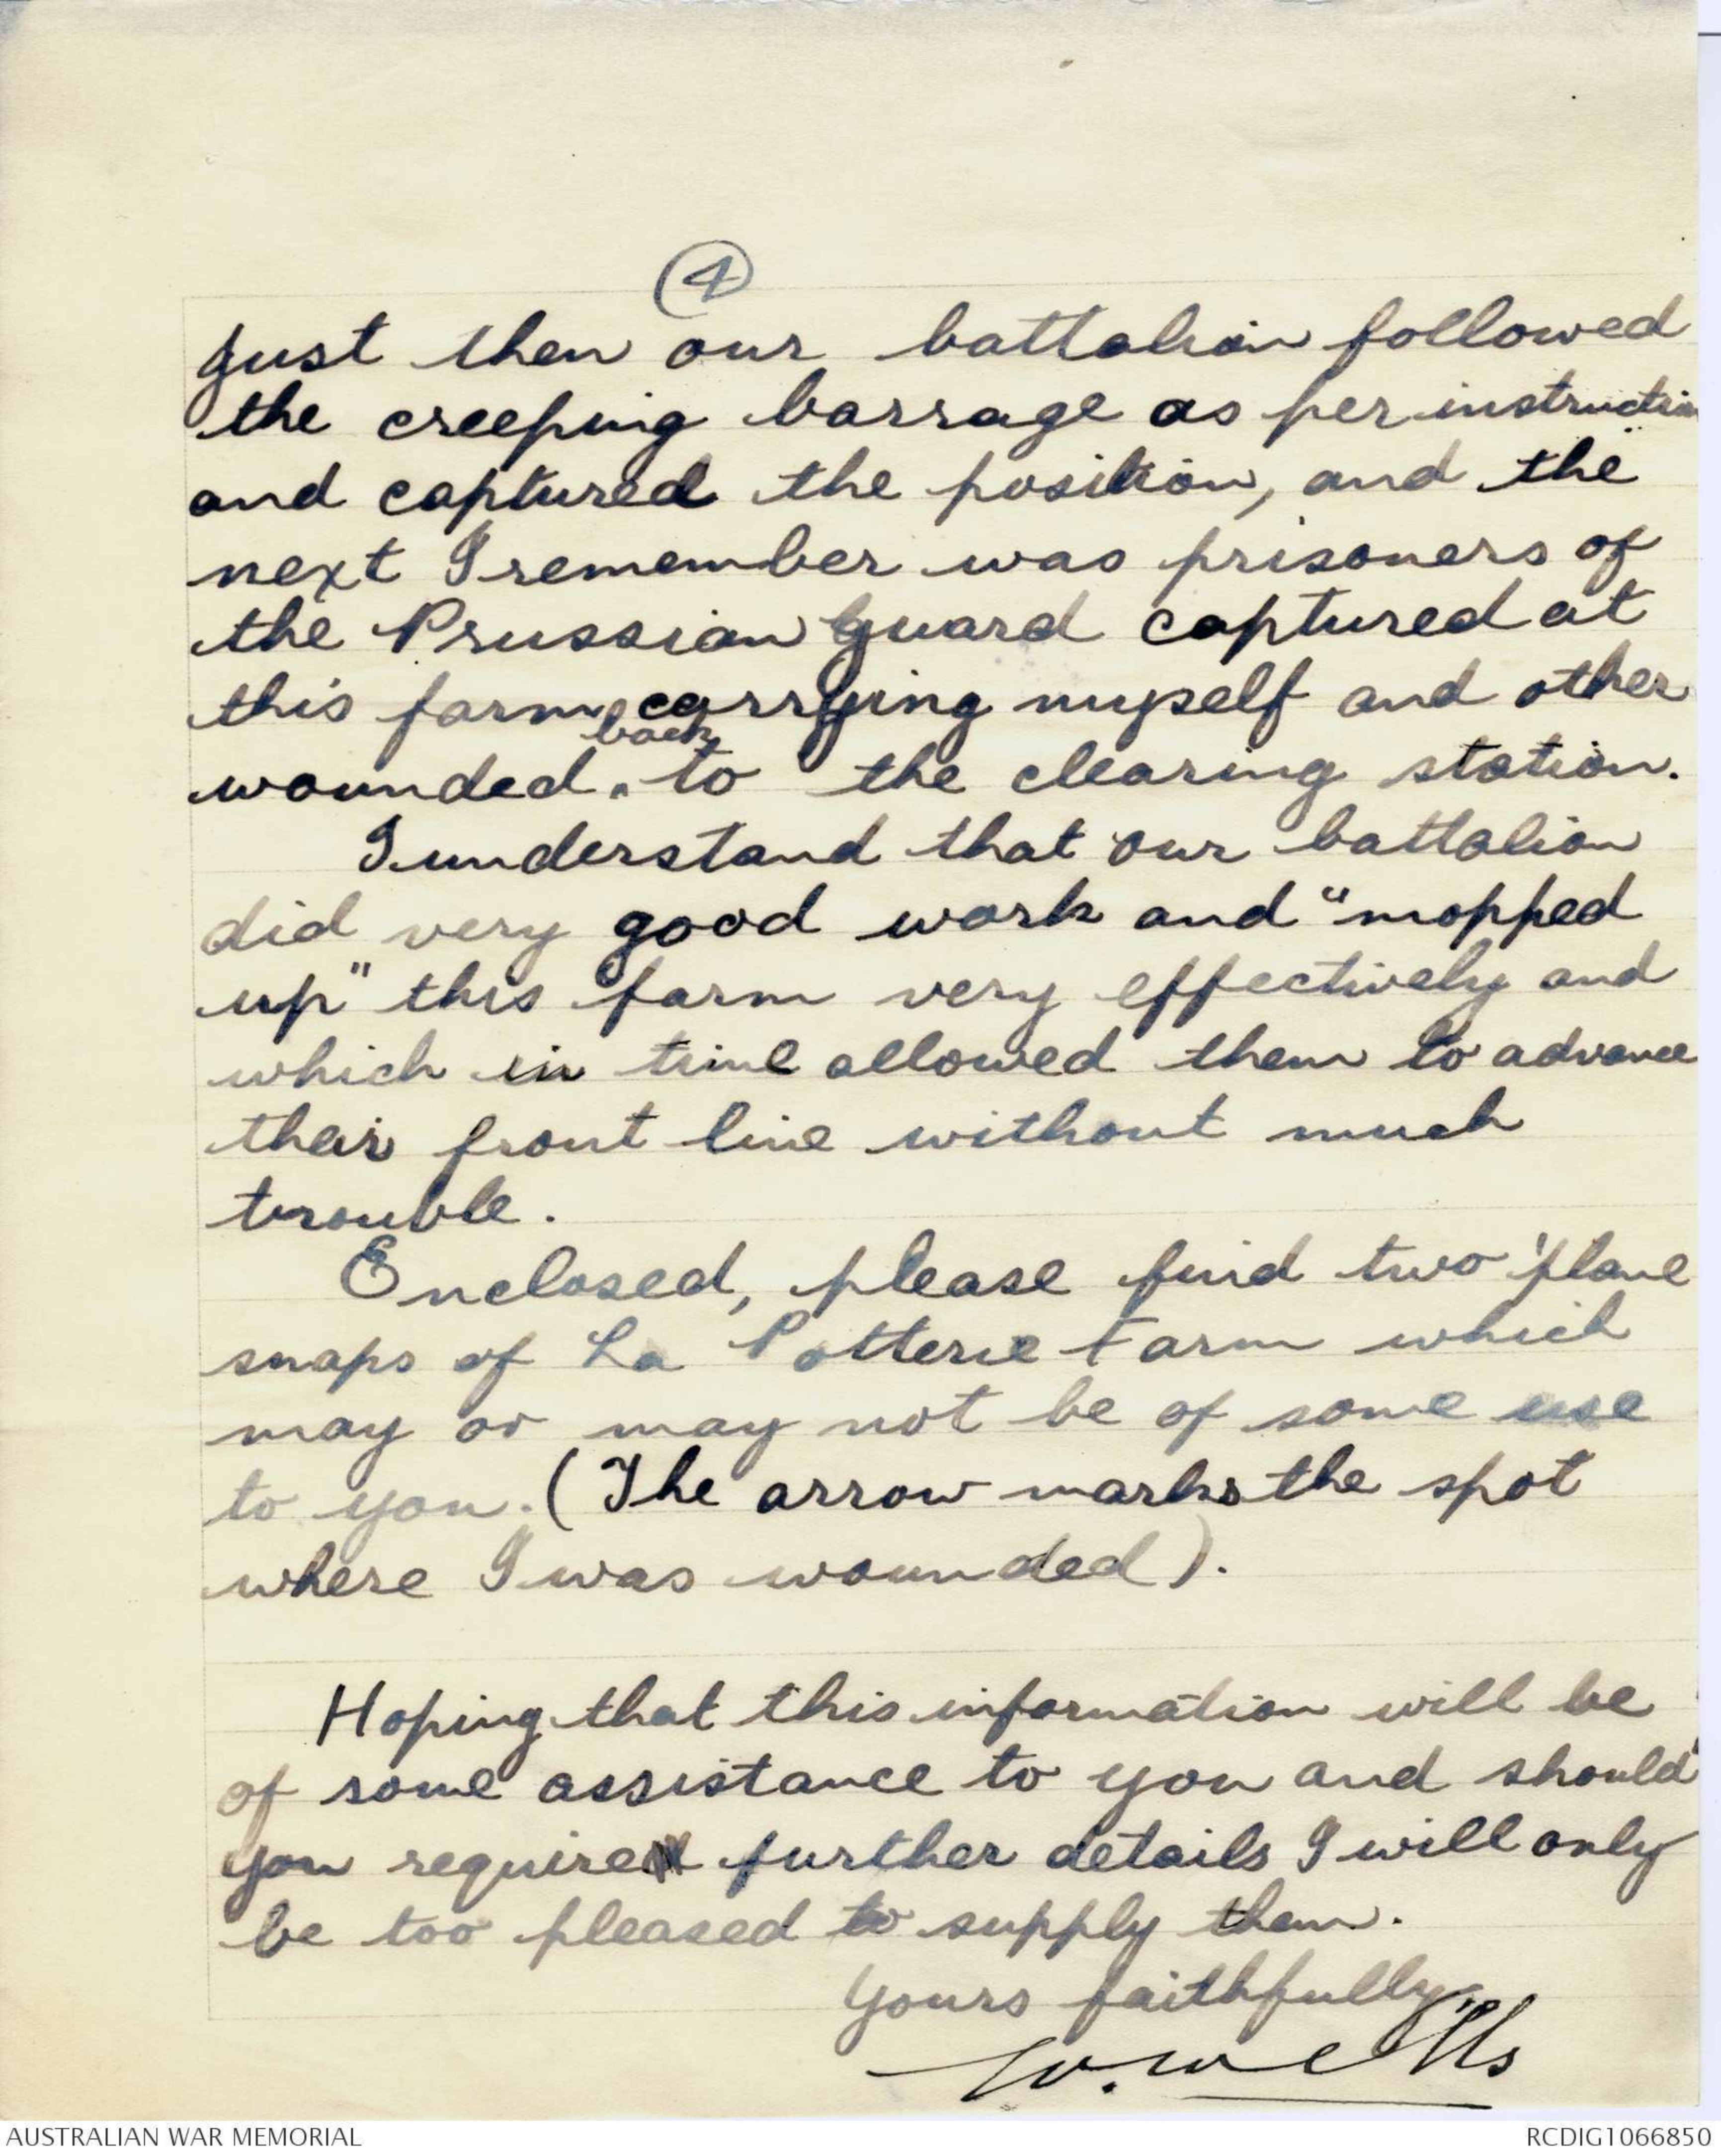 (4)
just then our battalion followed
the creeping barrage as per instruction
and captured the position, and the
next I remember was prisoners of
the Prussian Guard captured at
this farm, carrying myself and other
back
wounded ^ to the clearing station.
I understand that our battalion
did very good work and "mopped
up" this farm very effectively and
which in time allowed them to advance
their front line without much
trouble.
Enclosed, please find two 'plane
snaps of La Potterie Farm which
may or may not be of some use
to you. (The arrow marks the spot
where I was wounded).
Hoping that this information will be
of some assistance to you and should
you require further details I will only
be too pleased to supply them.
Yours faithfully,
W. Wells
AUSTRALIAN WAR MEMORIAL
RCDIG1066850